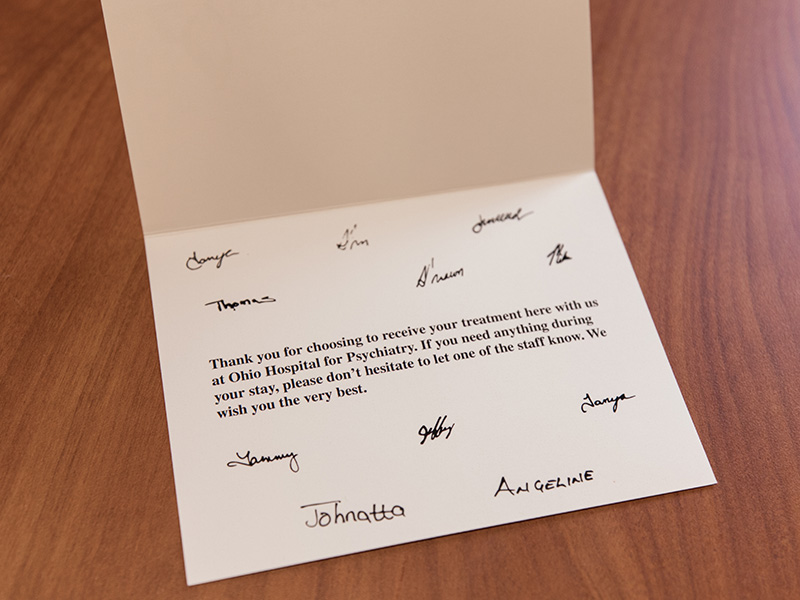 Tanya
Thomas
Thank you for choosing to receive your treatment here with us
at Ohio Hospital for Psychiatry. If you need anything during
your stay, please don't hesitate to let one of the staff know. We
wish you the very best.
Tanya
Tammy
Johnatta
ANGELINE